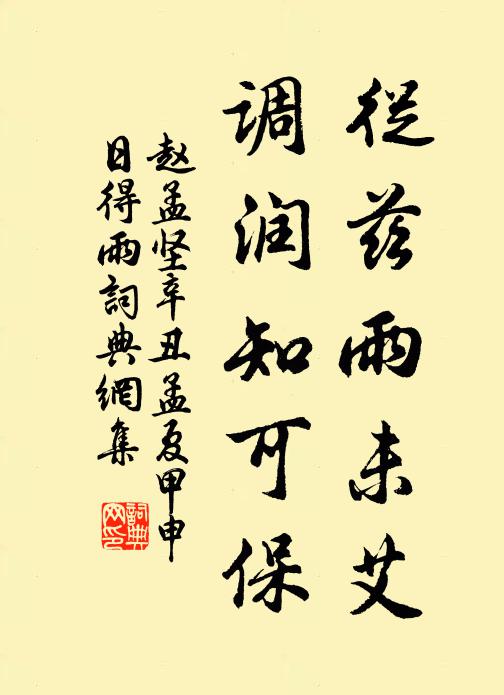 從茲雨未艾
调润知可保
赵孟坚辛丑孟夏甲申
日得雨詞典網集
詞典
网印